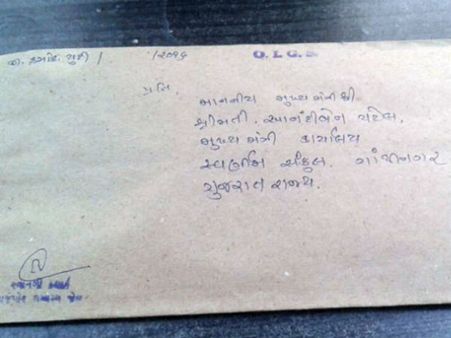 /૨૦૧૬
O. I. G. S
પ્રતિ,
માનનીય મુખ્યમંત્રીશ્રી
શ્રીમતી. આનંદીબેન પટેલ.
મુખ્ય મંત્રી કાર્યાલય
સ્વર્ણિમ સંકુલ. ગાંધીનગર
ગુજરાત રાજ્ય.